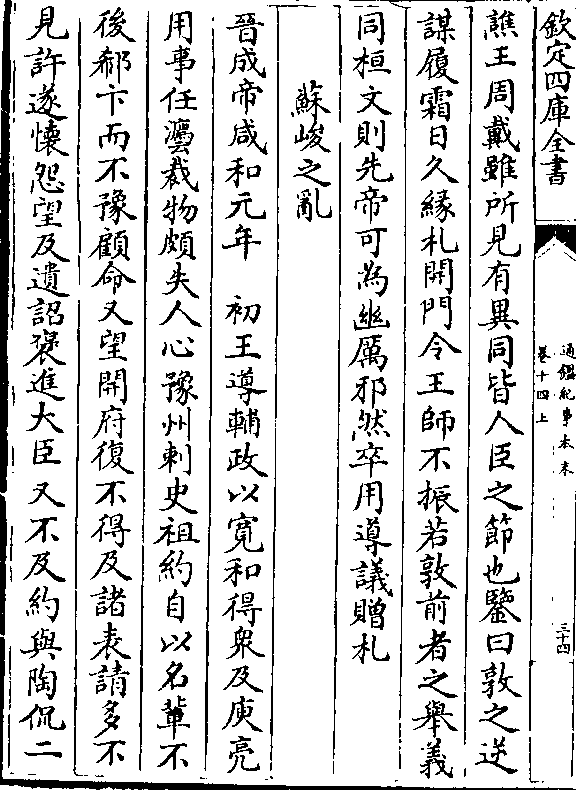 欽定四庫全書
通鑑紀事本末
卷十四上
三十四
譙王周戴雖所見有異同皆人臣之節也鑒曰敦之逆
謀履霜日久緣札開門令王師不振若敦前者之舉義
同桓文則先帝可為幽厲邪然卒用導議贈札
蘇峻之亂
晉成帝咸和元年 初王導輔政以寛和得衆及庾亮
用事任灋裁物頗失人心豫州刺史祖約自以名輩不
後郗卞而不豫顧命又望開府復不得及諸表請多不
見許遂懐怨望及遺詔褒進大臣又不及約與陶侃二